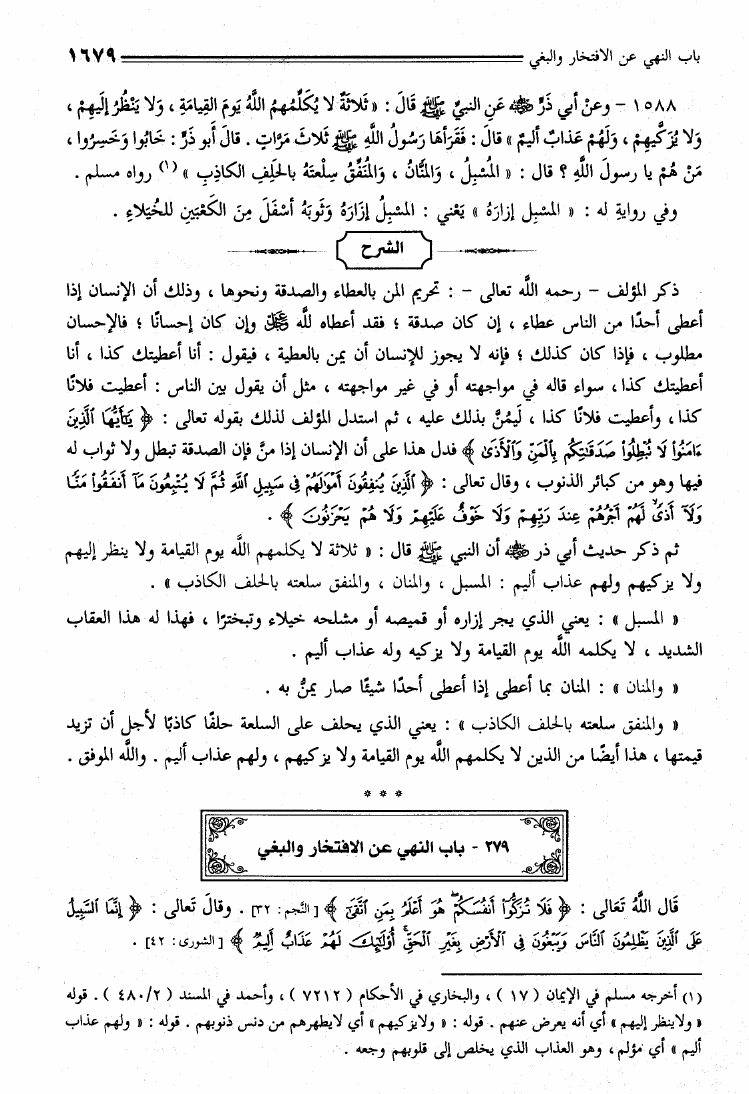 باب النهي عن الافتخار والبغي ١٦٧٩
١٥٨٨ - وعنْ أبي ذَرٍّ ﷺ عَنِ النبيِّ ﷺ قَالَ : « ثَلاثَةٌ لا يُكَلِّمُهمُ اللَّهُ يَومَ القِيامَةِ ، وَلا يَنْظُرُ إلَيهِمْ ،
وَلا يُزَكِّيهِمْ ، وَلَهُمْ عَذَابٌ أليمٌ » قالَ : فَقَرأها رَسُولُ اللَّهِ ﷺ ثَلاثَ مَرَّاتٍ . قالَ أبو ذَرٍّ : خَابُوا وَخَسِرُوا ،
مَنْ هُمْ يا رسولَ اللَّهِ ؟ قال : « المُسْبِلُ ، وَالمَنَّانُ ، وَالمُنَفِّقُ سِلْعتَهُ بالحَلِفِ الكاذِبِ » (١) رواه مسلم .
وفي روايةٍ له : « المسْبِل إزارَهُ » يَعْني : المسْبِلُ إزَارَهُ وَثَوبَهُ أسْفَلَ مِنَ الكَعْبَينِ للخُيَلاءِ .
الشرح
ذكر المؤلف - رحمه اللَّه تعالى - : تحريم المن بالعطاء والصدقة ونحوها ، وذلك أن الإنسان إذا
أعطى أحدًا من الناس عطاء ، إن كان صدقة ؛ فقد أعطاه للَّه ﷻ وإن كان إحسانًا ؛ فالإحسان
مطلوب ، فإذا كان كذلك ؛ فإنه لا يجوز للإنسان أن يمن بالعطية ، فيقول : أنا أعطيتك كذا ، أنا
أعطيتك كذا ، سواء قاله في مواجهته أو في غير مواجهته ، مثل أن يقول بين الناس : أعطيت فلانًا
كذا ، وأعطيت فلانًا كذا ، لَيمُنَّ بذلك عليه ، ثم استدل المؤلف لذلك بقوله تعالى : ﴿ يَٰٓأَيُّهَا ٱلَّذِينَ
ءَامَنُوا۟ لَا تُبْطِلُوا۟ صَدَقَٰتِكُم بِٱلْمَنِّ وَٱلْأَذَىٰ ﴾ فدل هذا على أن الإنسان إذا منَّ فإن الصدقة تبطل ولا ثواب له
فيها وهو من كبائر الذنوب ، وقال تعالى : ﴿ ٱلَّذِينَ يُنفِقُونَ أَمْوَٰلَهُمْ فِى سَبِيلِ ٱللَّهِ ثُمَّ لَا يُتْبِعُونَ مَآ أَنفَقُوا۟ مَنًّا
وَلَآ أَذًى ۙ لَّهُمْ أَجْرُهُمْ عِندَ رَبِّهِمْ وَلَا خَوْفٌ عَلَيْهِمْ وَلَا هُمْ يَحْزَنُونَ ﴾ .
ثم ذكر حديث أبي ذر ﷺ أن النبي ﷺ قال : « ثلاثة لا يكلمهم اللَّه يوم القيامة ولا ينظر إليهم
ولا يزكيهم ولهم عذاب أليم : المسبل ، والمنان ، والمنفق سلعته بالحلف الكاذب » .
« المسبل » : يعني الذي يجر إزاره أو قميصه أو مشلحه خيلاء وتبخترًا ، فهذا له هذا العقاب
الشديد ، لا يكلمه اللَّه يوم القيامة ولا يزكيه وله عذاب أليم .
« والمنان » : المنان بما أعطى إذا أعطى أحدًا شيئًا صار يمنُّ به .
« والمنفق سلعته بالحلف الكاذب » : يعني الذي يحلف على السلعة حلفًا كاذبًا لأجل أن تزيد
قيمتها ، هذا أيضًا من الذين لا يكلمهم اللَّه يوم القيامة ولا يزكيهم ، ولهم عذاب أليم . واللَّه الموفق .
* * *
٢٧٩ - باب النهي عن الافتخار والبغي
قَال اللَّهُ تَعَالى : ﴿ فَلَا تُزَكُّوٓا۟ أَنفُسَكُمْ ۖ هُوَ أَعْلَمُ بِمَنِ ٱتَّقَىٰٓ ﴾ [ النَّجم : ٣٢] . وقالَ تَعالى : ﴿ إِنَّمَا ٱلسَّبِيلُ
عَلَى ٱلَّذِينَ يَظْلِمُونَ ٱلنَّاسَ وَيَبْغُونَ فِى ٱلْأَرْضِ بِغَيْرِ ٱلْحَقِّ ۚ أُو۟لَٰٓئِكَ لَهُمْ عَذَابٌ أَلِيمٌ ﴾ [ الشورى : ٤٢] .
(١) أخرجه مسلم في الإيمان ( ١٧ ) ، والبخاري في الأحكام ( ٧٢١٢ ) ، وأحمد في المسند ( ٤٨٠/٢ ) . قوله
« ولاينظر إليهم » أي أنه يعرض عنهم . قوله : « ولايزكيهم » أي لايطهرهم من دنس ذنوبهم . قوله : « ولهم عذاب
أليم » أي مؤلم ، وهو العذاب الذي يخلص إلى قلوبهم وجعه .